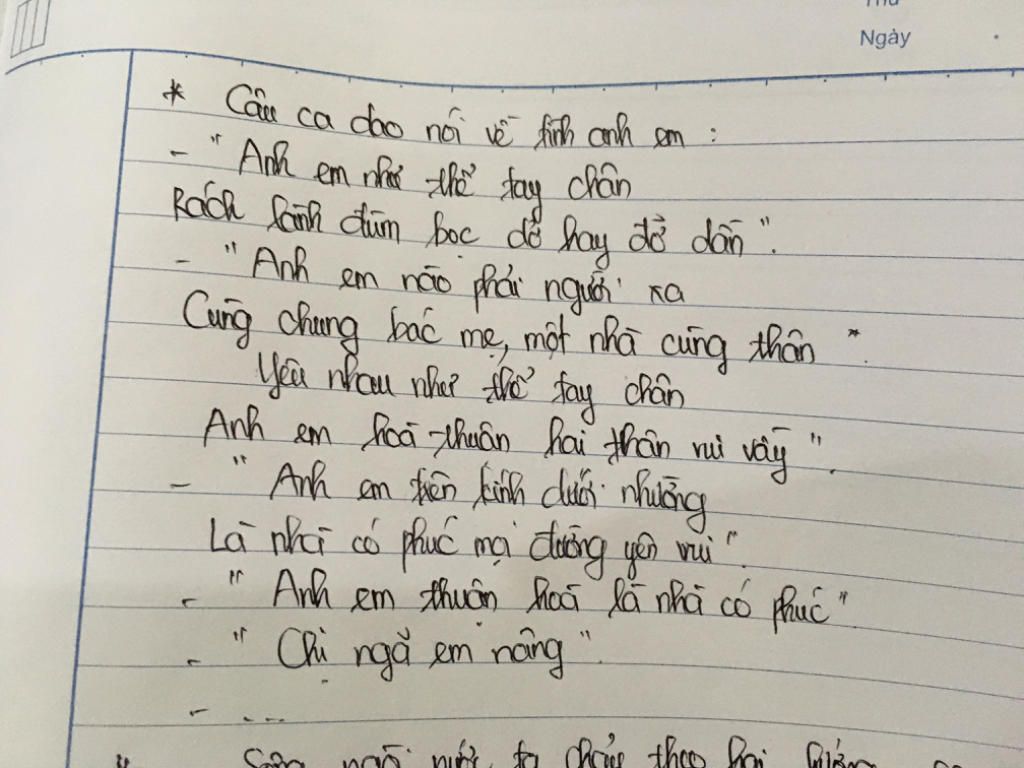 Thứ
Ngày
* Câu ca dao nói về tình anh em :
- " Anh em như thể tay chân
Rách lành đùm bọc dở hay đỡ dần ".
- " Anh em nào phải người xa
Cùng chung bác mẹ, một nhà cùng thân ".
Yêu nhau như thể tay chân
Anh em hoà thuận hai thân vui vầy ".
- " Anh em trên kính dưới nhường
Là nhà có phúc mọi đường yên vui ".
- " Anh em thuận hoà là nhà có phúc "
- " Chị ngã em nâng ".
- ...
nước ta chảy theo hai hướng